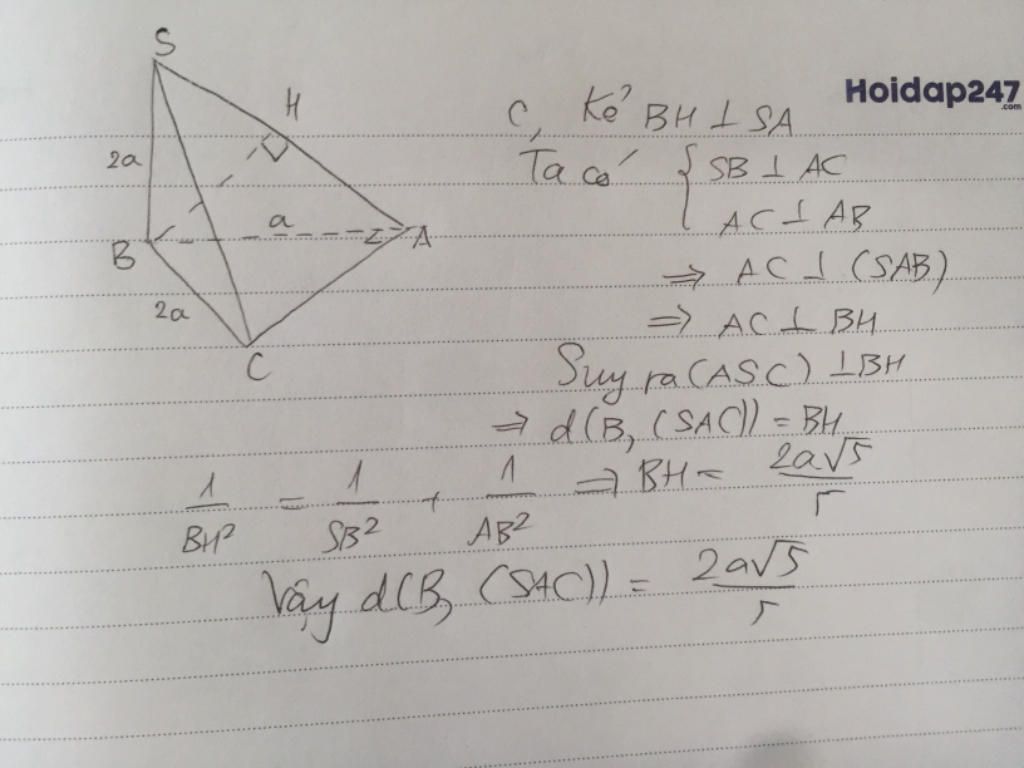 S
H
2a
a
B
A
2a
C
Hoidap247
.com
c, Kẻ BH ⊥ SA
Ta có { SB ⊥ AC
AC ⊥ AB
⇒ AC ⊥ (SAB)
⇒ AC ⊥ BH
Suy ra (ASC) ⊥ BH
⇒ d(B, (SAC)) = BH
1/BH² = 1/SB² + 1/AB² ⇒ BH = 2a√5/5
Vậy d(B, (SAC)) = 2a√5/5